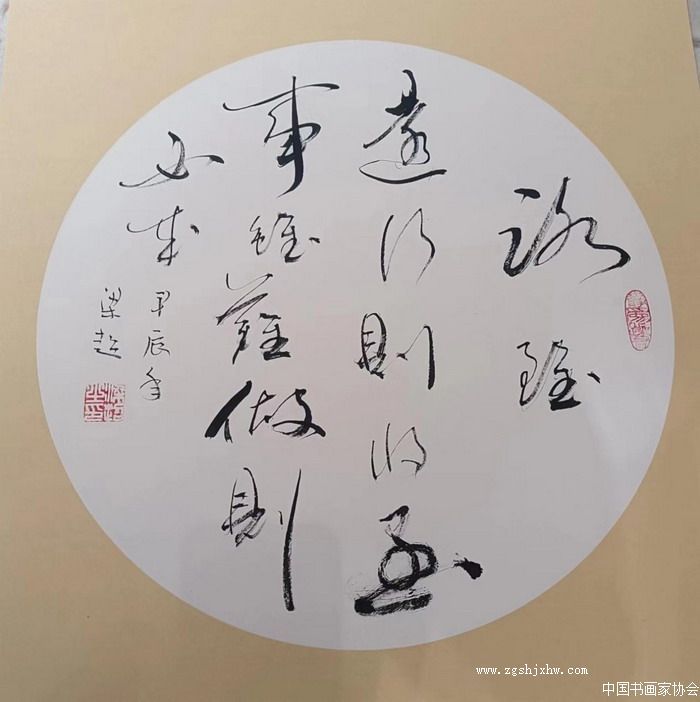 路雖
遠行則將至
事雖難做則
必成
甲辰年
梁超
www.zgshjxhw.com
中国书画家协会